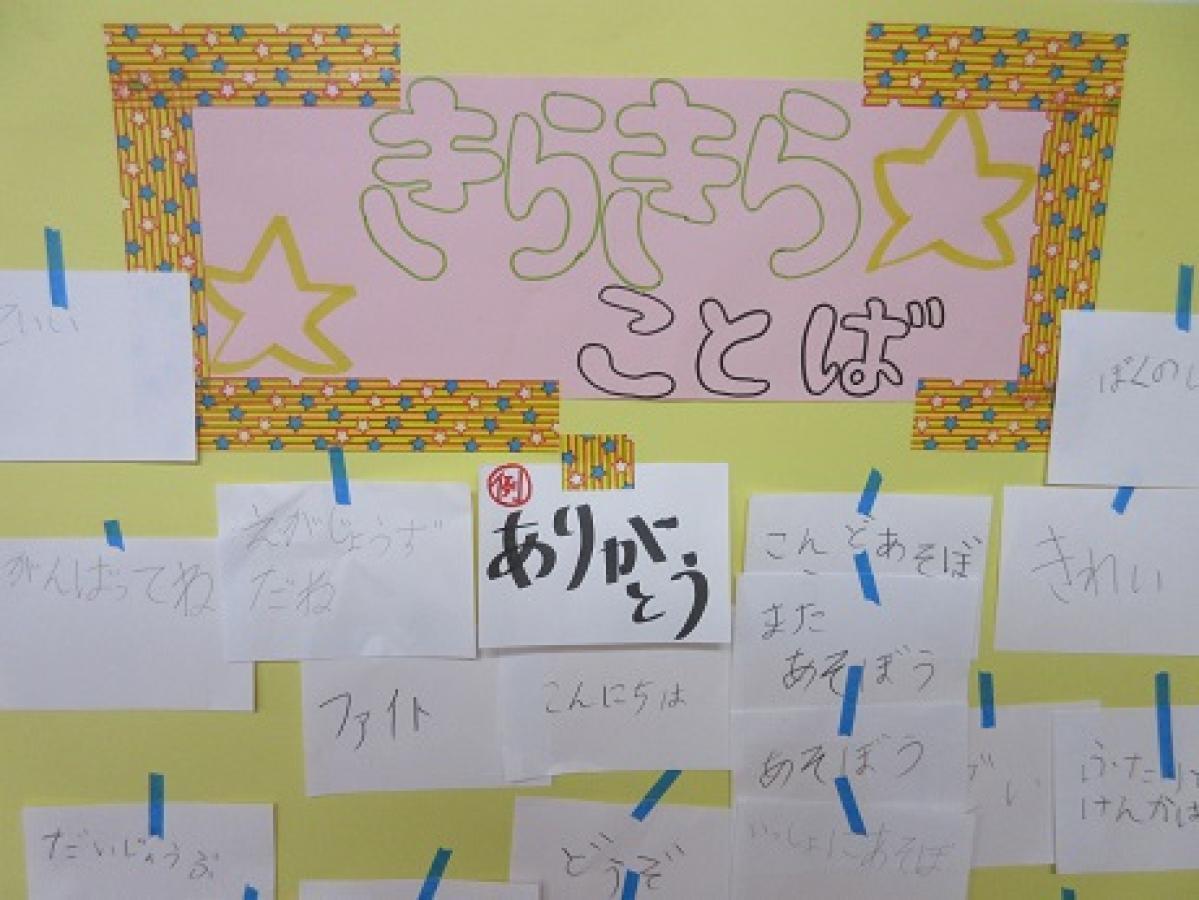 きらきら
ことば
例
ありがとう
えがじょうず
だね
がんばってね
ファイト
こんにちは
こんどあそぼ
また
あそぼう
あそぼう
いっしょにあそぼ
きれい
ぼくの
ふたり
けんかは
だいじょうぶ
どうぞ